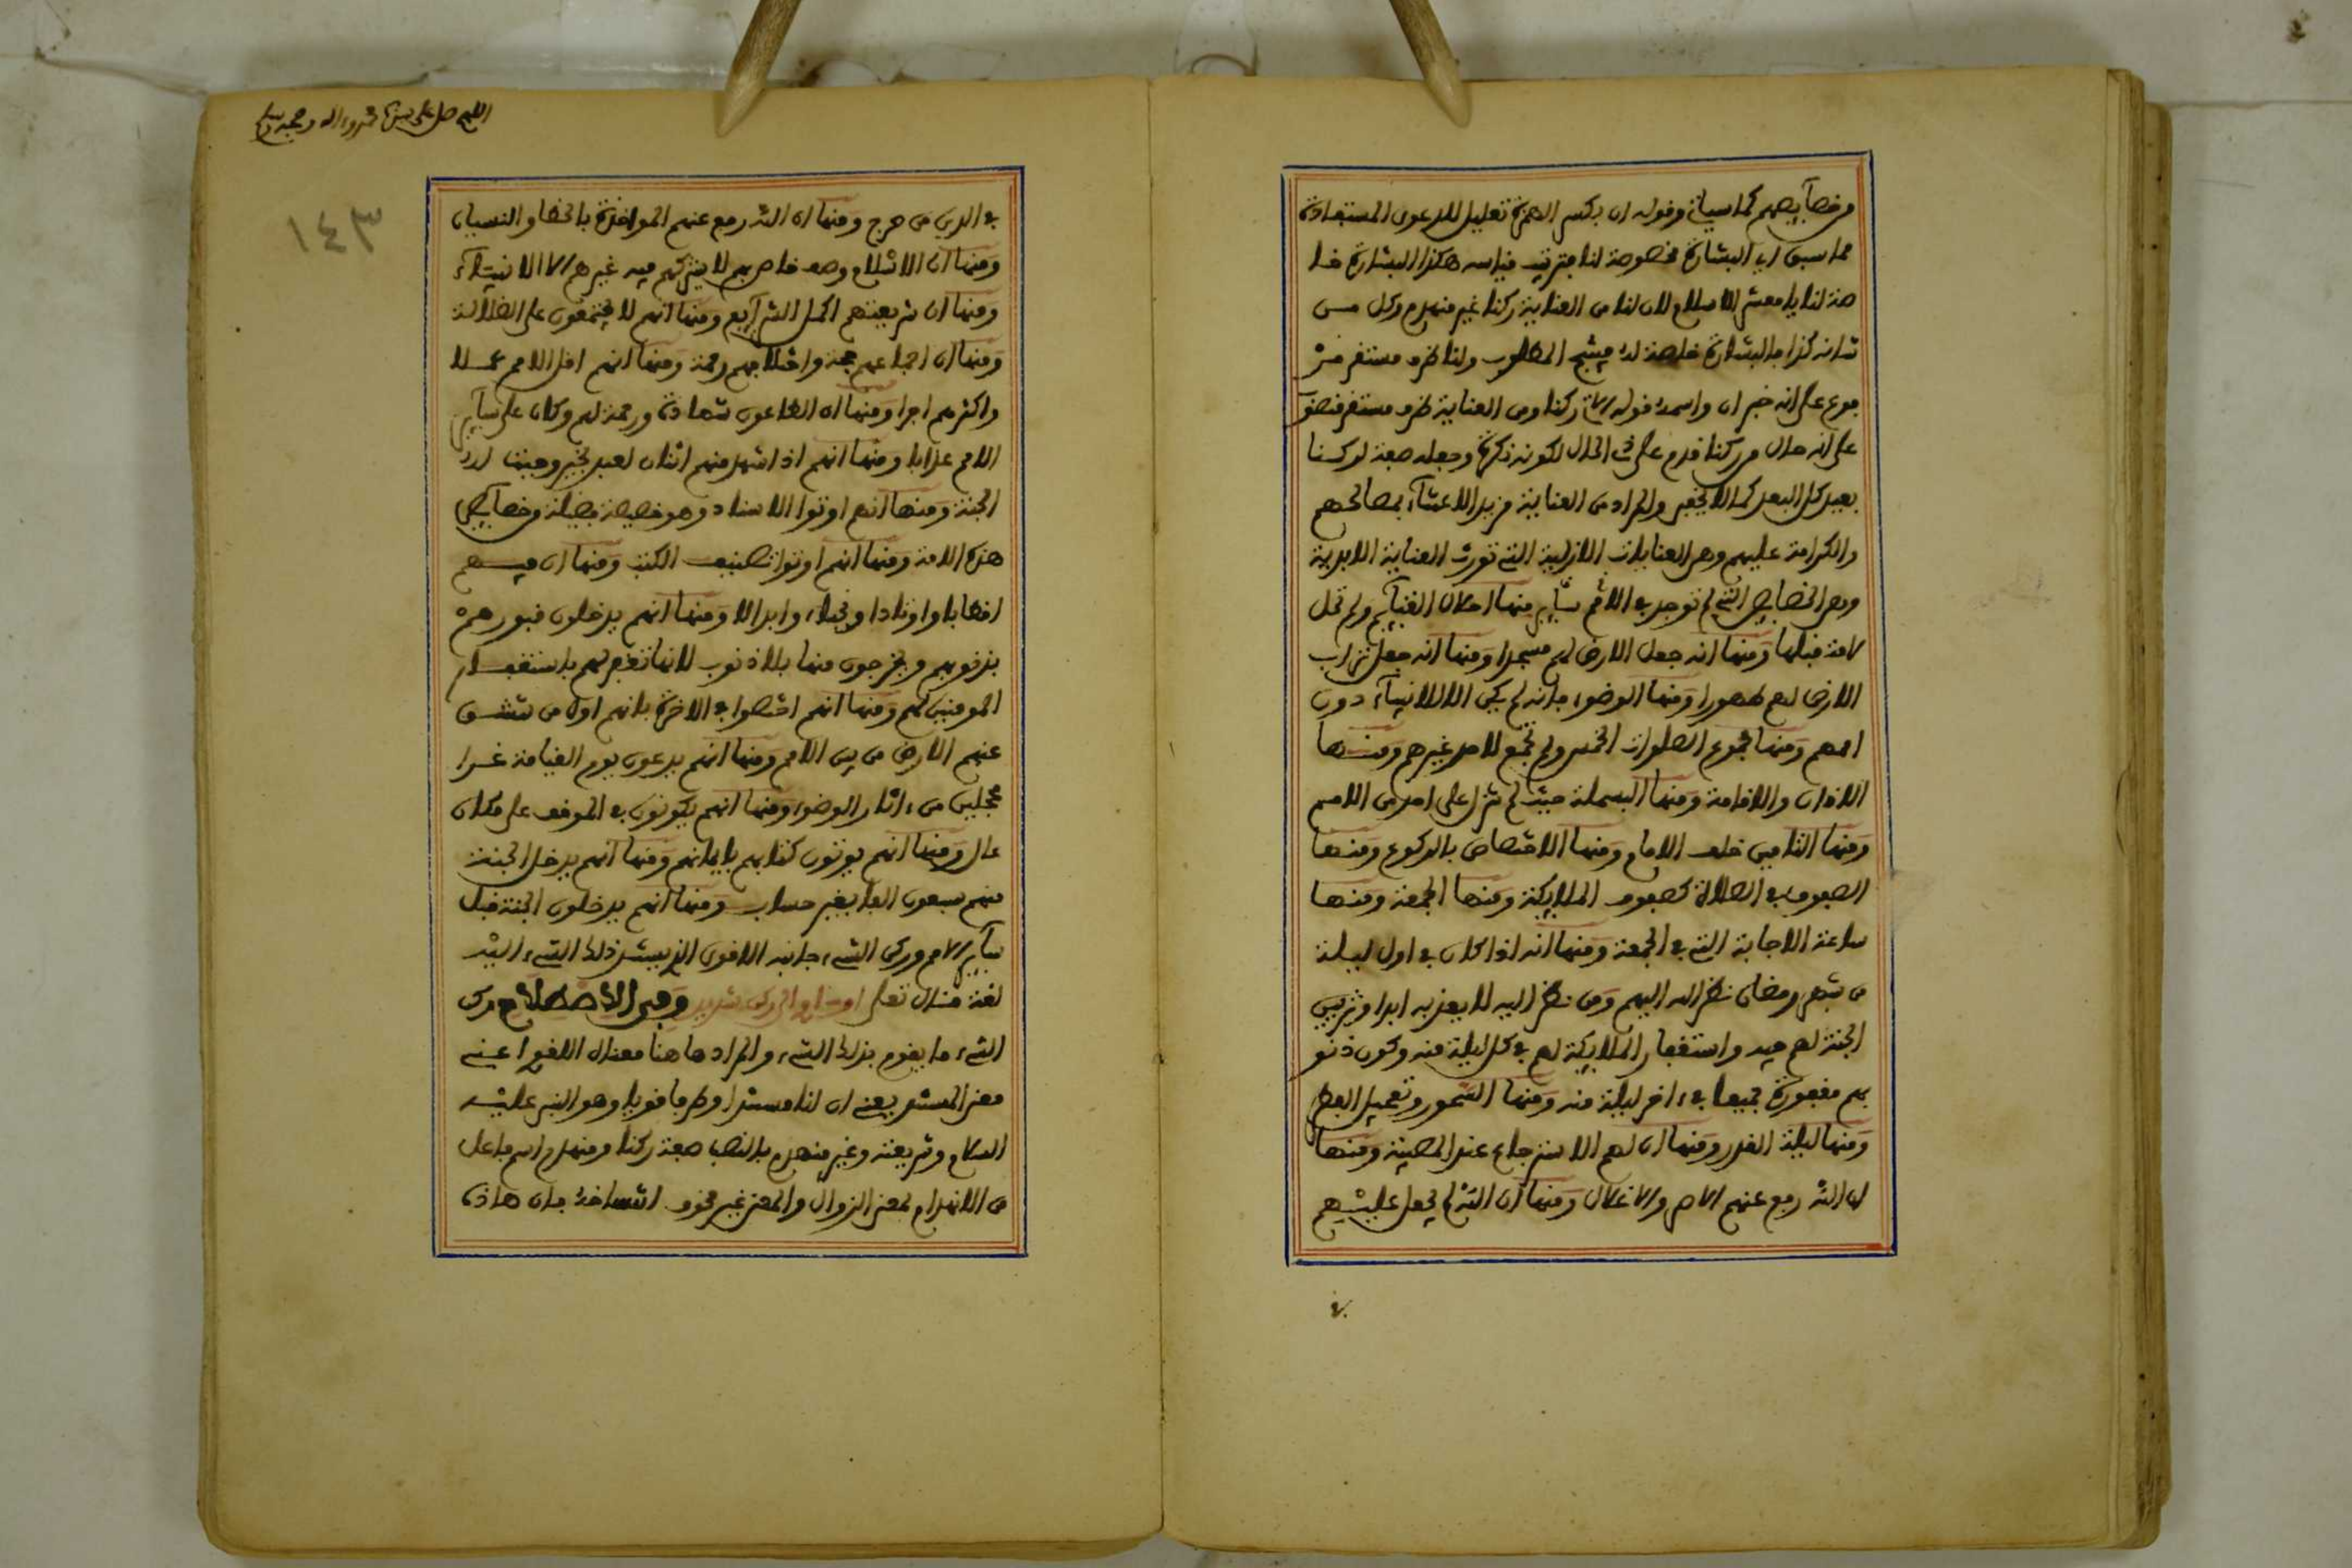 من خصآيصهم كما سياتي وقوله ان بكسر الهمزة تعليل للدعوى المستفادة
مما سبق اي البشارة مخصوصة لنا فترتيب قياسه هكذا البشارة خا
صة لنا يا معشر الاسلام لان لنا من العناية ركنا غير منهدم وكل من
شانه كذا فالبشارة خاصة له ينتج المطلوب ولنا ظرف مستقر مر
فوع على انه خبر ان واسمه قوله الاتي ركنا ومن العناية ظرف مستقر منصو
على انه حال من ركنا قدم على ذي الحال لكونه نكرة وجعله صفة لركنا
بعيد كل البعد كما لا يخفى والمراد من العناية مزيد الاعتنآء بمصالحهم
والكرامة عليهم وهي العنايات الازلية التي تورث العناية الابدية
وهي الخصايص التي لم توجد في الامم سآير منها احلال الغنآيم ولم تحل
لامة قبلها ومنها انه جعل الارض لهم مسجدا ومنها انه جعل تراب
الارض لهم طهورا ومنها الوضوء فانه لم يكن الا للانبيآء دون
اممهم ومنها مجموع الصلوات الخمس ولم تجمع لاحد غيرهم ومنها
الاذان والاقامة ومنها البسملة حيث لم تنزل على احد من الامم
ومنها التامين خلف الامام ومنها الاختصاص بالركوع ومنها
الصفوف في الصلاة كصفوف الملايكة ومنها الجمعة ومنها
ساعة الاجابة التي في الجمعة ومنها انه اذا كان في اول ليلة
من شهر رمضان نظر الله اليهم ومن نظر اليه لا يعذبه ابدا وتزيين
الجنة لهم فيه واستغفار الملايكة لهم في كل ليلة منه وكون ذنو
بهم مغفورة جميعا في ءاخر ليلة منه ومنها السحور وتعجيل الفطر
ومنها ليلة القدر ومنها ان لهم الاسترجاع عند المصيبة ومنها
ان الله رفع عنهم الاصر والاغلال ومنها ان الله لم يجعل عليهم
في
اللهم صل على سيدنا محمد وءاله وصحبه وسلم
١٤٣
في الدين من حرج ومنها ان الله رفع عنهم المواخذة بالخطا والنسيان
ومنها ان الاسلام وصف خاص بهم لا يشركهم فيه غيرهم الا الانبيآء
ومنها ان شريعتهم اكمل الشرآيع ومنها انهم لا يجتمعون على الضلالة
ومنها ان اجماعهم حجة واختلافهم رحمة ومنها انهم اقل الامم عملا
واكثرهم اجرا ومنها ان الطاعون شهادة ورحمة لهم وكان على سآير
الامم عذابا ومنها انهم اذا شهد منهم اثنان لعبد بخير وجبت له
الجنة ومنها انهم اوتوا الاسناد وهو خصيصة فضيلة من خصآيص
هذه الامة ومنها انهم اوتوا تصنيف الكتب ومنها ان فيهم
اقطابا واوتادا ونجباء وابدالا ومنها انهم يدخلون قبورهم
بذنوبهم ويخرجون منها بلا ذنوب لانها تغفر لهم باستغفار
المومنين لهم ومنها انهم اختصوا في الاخرة بانهم اول من تنشق
عنهم الارض من بين الامم ومنها انهم يدعون يوم القيامة غرا
محجلين من ءاثار الوضوء ومنها انهم يكونون في الموقف على مكان
عال ومنها انهم يوتون كتابهم بايمانهم ومنها انهم يدخل الجنة
منهم سبعون الفا بغير حساب ومنها انهم يدخلون الجنة قبل
سآير الامم وركن الشيء جانبه الاقوى الذي يستند ذلك الشيء اليه
لغة قال تعلى او ءاوي الى ركن شديد وفي الاصطلاح ركن
الشيء ما يقوم بذلك الشيء والمراد هاهنا معناه اللغوي اعني
معنى المستند يعني ان لنا مستندا وطرفا قويا وهو النبي عليه
السلام وشريعته وغير منهدم بالنصب صفة ركنا ومنهدم اسم فاعل
من الانهدام بمعنى الزوال والمعنى غير مخوف انتساخه فان هاذه